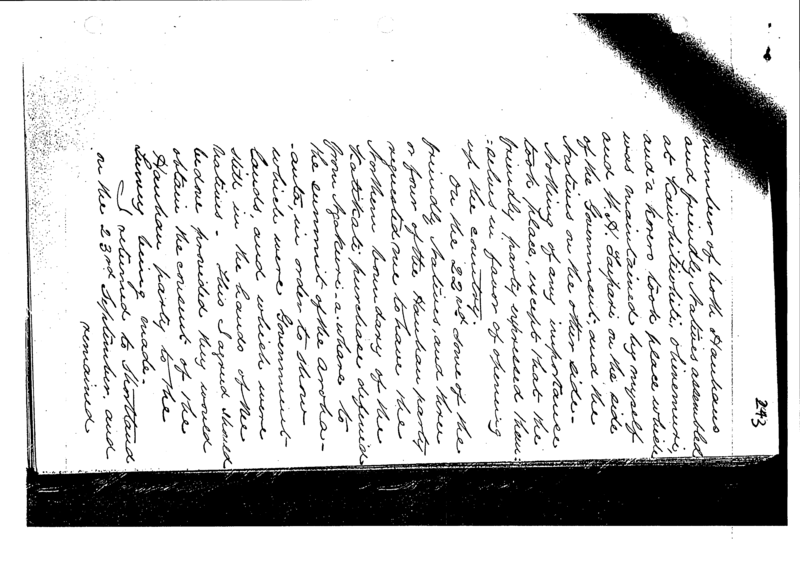 243
number of both Hauhaus
and friendly Natives assembled
at Kaiotutututi, Ohinemuri,
and a korero took place which
was maintained by myself
and H. A. on the side
of the Government, and the
Natives on the other side -
Nothing of any importance
took place, except that the
friendly party expressed them:
:selves in favor of opening
up the country.
On the 22nd some of the
friendly Natives and three
or four of the Hauhau party
requested me to have the
Northern boundary of the
Katikati purchase defined
from Ngakuri-a-whare to
the summit of the Aroha-
-auta, in order to show
which were Government
lands, and which were
still in the hands of the
Natives - This I agreed should
be done provided they would
obtain the consent of the
Hauhau party to the
Survey being made -
I returned to Shortland
on the 23rd September, and
remained